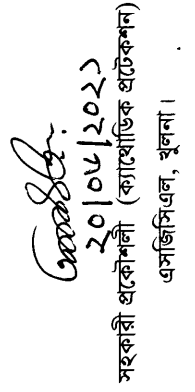 ২০/০৮/২০২১
সহকারী প্রকৌশলী (ক্যাথোডিক প্রটেকশন)
এসজিসিএল, খুলনা।